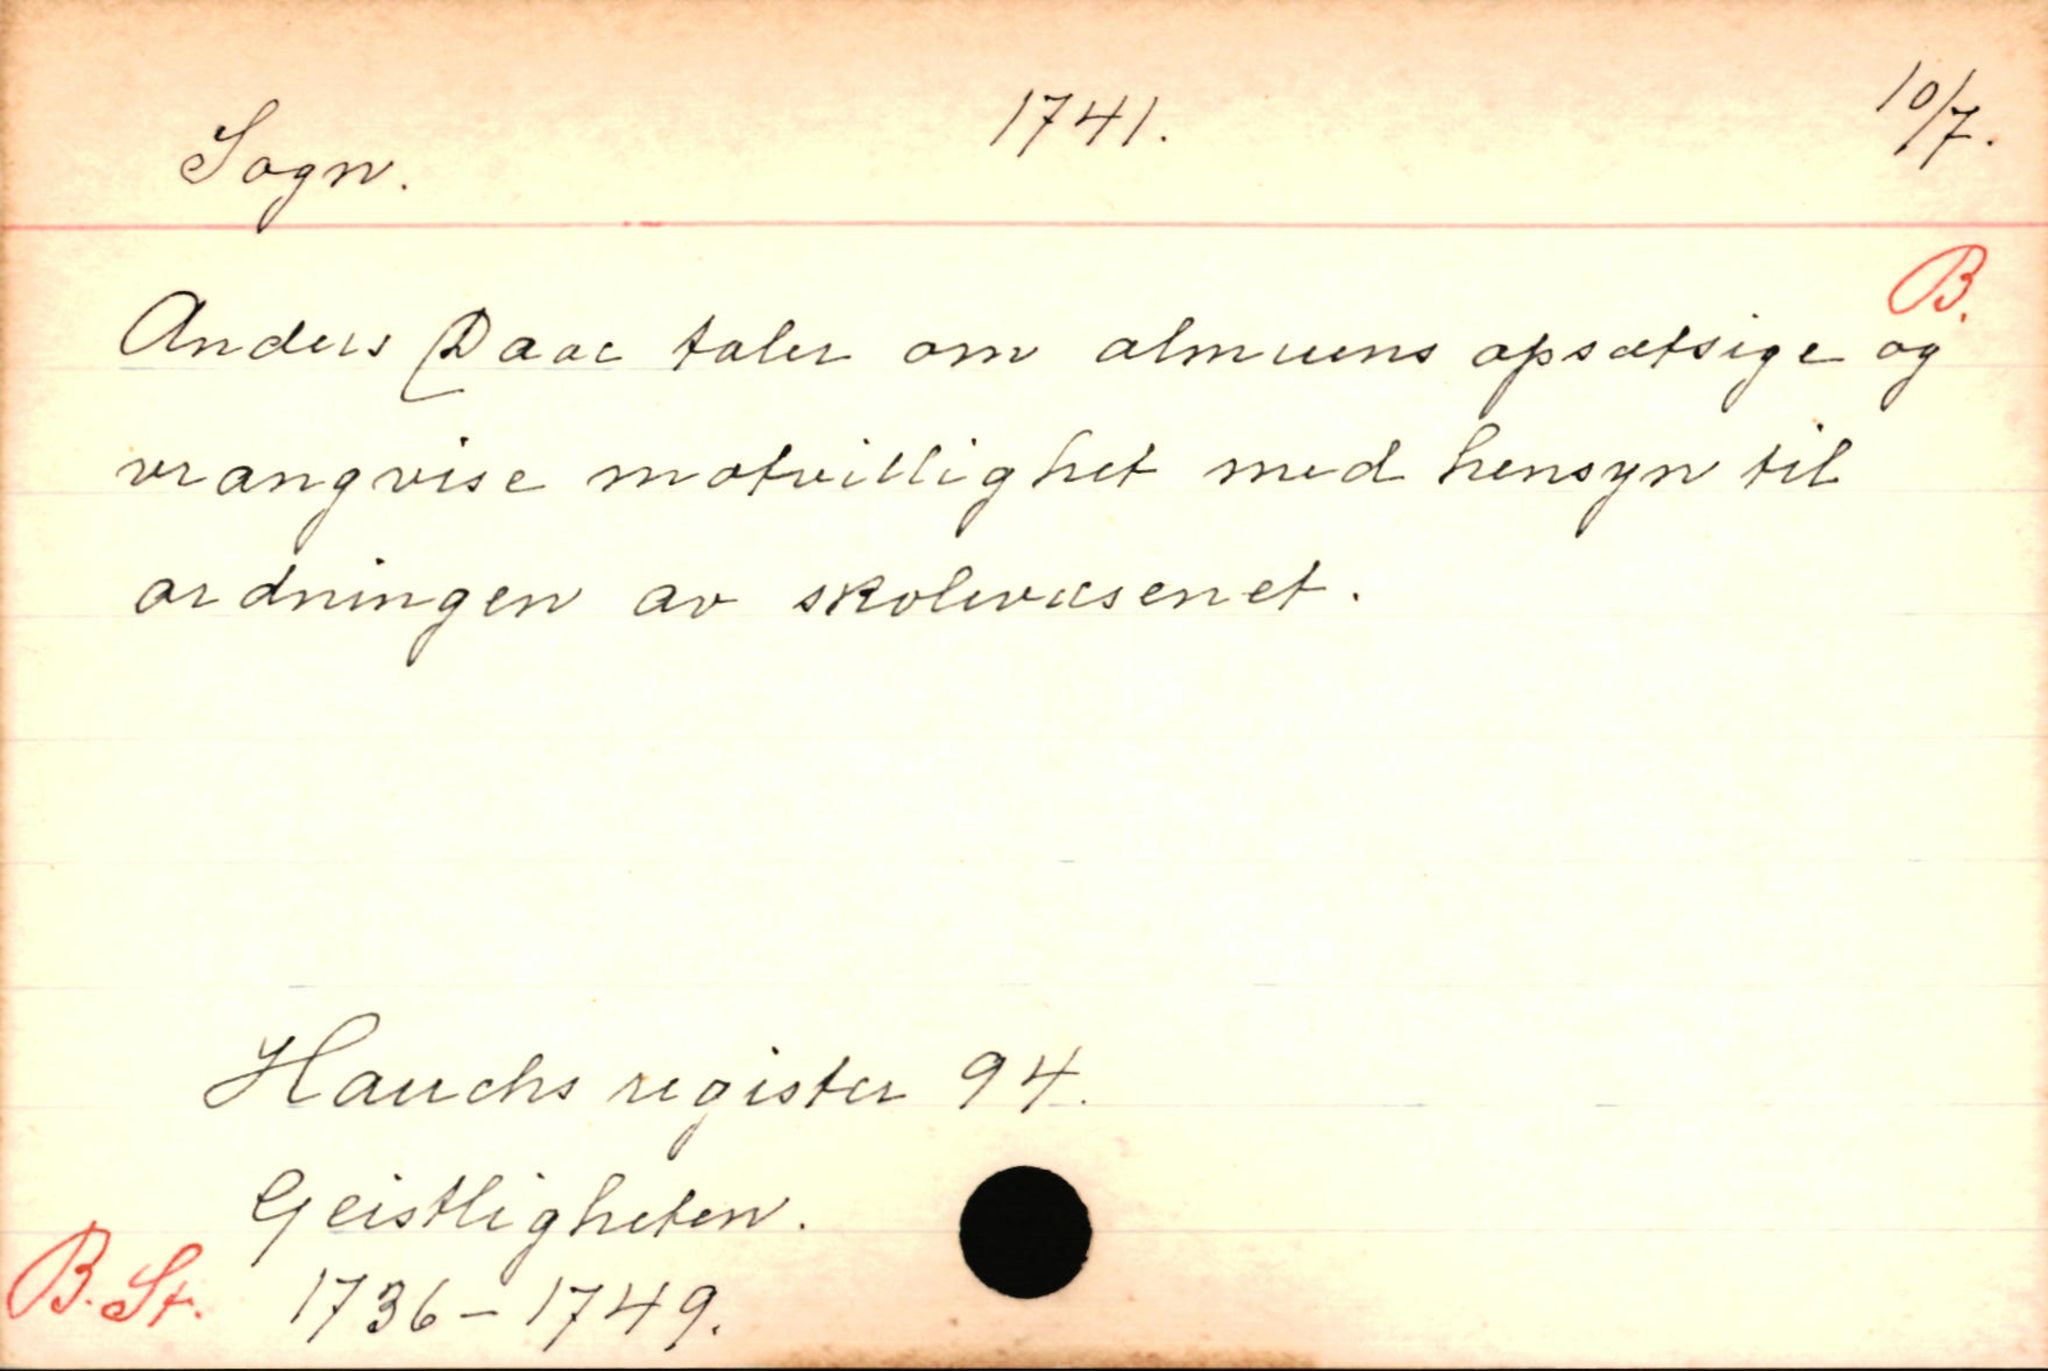 Sogn. 1741. 10/7.
B.
Anders Daae taler om almuens opsætsige og
vrangvise motvillighet med hensyn til
ordningen av skolevæsenet.
Hauchs register 94.
Geistligheten.
B. St. 1736-1749.